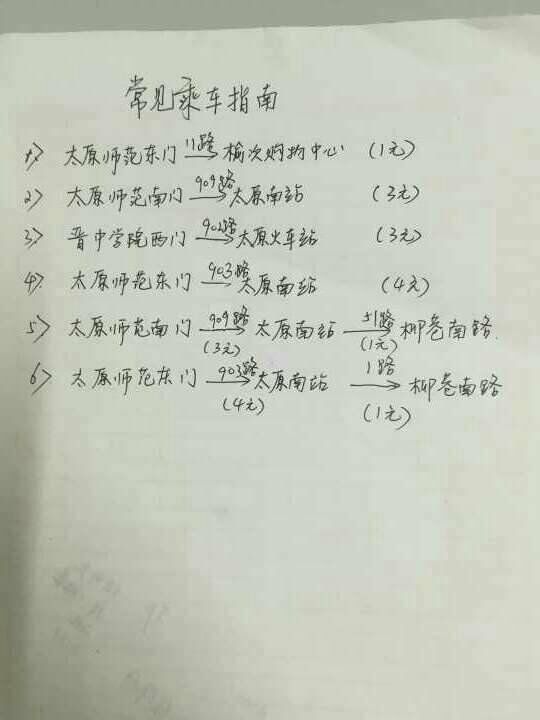 常见乘车指南
1> 太原师范东门 11路→ 榆次购物中心 (1元)
2> 太原师范南门 909路→ 太原南站 (3元)
3> 晋中学院西门 902路→ 太原火车站 (3元)
4> 太原师范东门 903路→ 太原南站 (4元)
5> 太原师范南门 909路→(3元) 太原南站 51路→(1元) 柳巷南路.
6> 太原师范东门 903路→(4元) 太原南站 1路→(1元) 柳巷南路